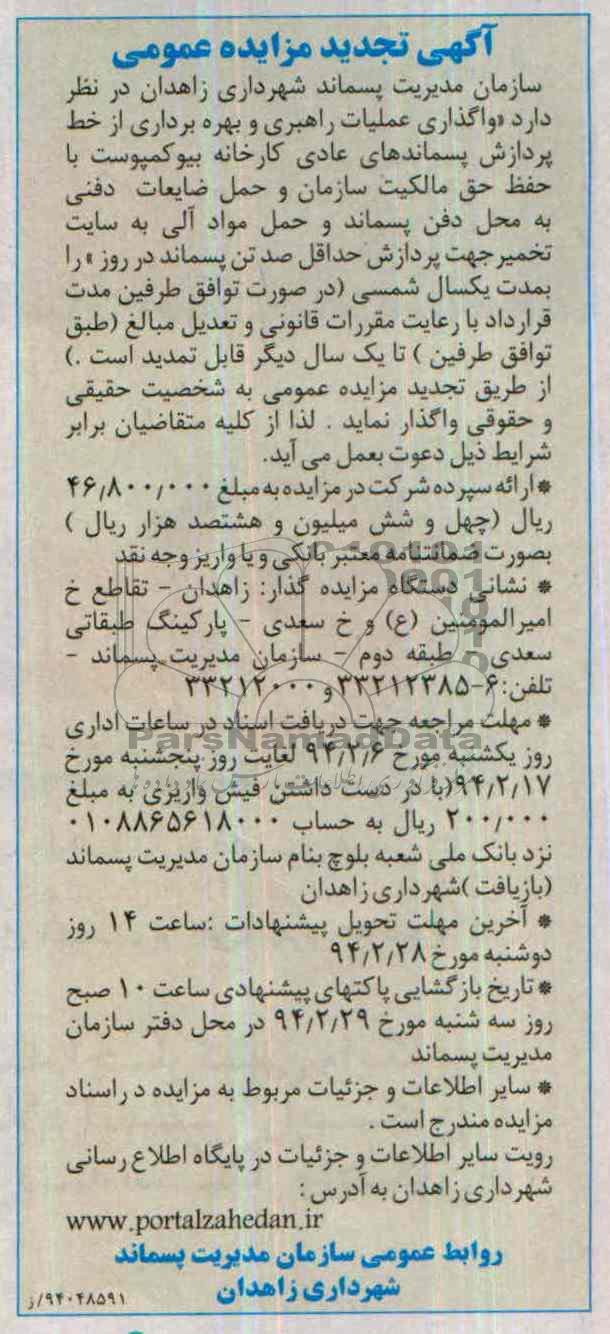 آگهی تجدید مزایده عمومی
سازمان مدیریت پسماند شهرداری زاهدان در نظر
دارد «واگذاری عملیات راهبری و بهره برداری از خط
پردازش پسماندهای عادی کارخانه بیوکمپوست با
حفظ حق مالکیت سازمان و حمل ضایعات دفنی
به محل دفن پسماند و حمل مواد آلی به سایت
تخمیر جهت پردازش حداقل صد تن پسماند در روز » را
بمدت یکسال شمسی (در صورت توافق طرفین مدت
قرارداد با رعایت مقررات قانونی و تعدیل مبالغ (طبق
توافق طرفین ) تا یک سال دیگر قابل تمدید است .)
از طریق تجدید مزایده عمومی به شخصیت حقیقی
و حقوقی واگذار نماید . لذا از کلیه متقاضیان برابر
شرایط ذیل دعوت بعمل می آید.
* ارائه سپرده شرکت در مزایده به مبلغ ۴۶٫۸۰۰٫۰۰۰
ریال (چهل و شش میلیون و هشتصد هزار ریال )
بصورت ضمانتنامه معتبر بانکی و یا واریز وجه نقد
* نشانی دستگاه مزایده گذار: زاهدان - تقاطع خ
امیرالمومنین (ع) و خ سعدی - پارکینگ طبقاتی
سعدی - طبقه دوم - سازمان مدیریت پسماند -
تلفن: ۶-۳۳۲۱۲۳۸۵ و ۳۳۲۱۲۰۰۰
* مهلت مراجعه جهت دریافت اسناد در ساعات اداری
ParsNamadData
روز یکشنبه مورخ ۹۴٫۲٫۶ لغایت روز پنجشنبه مورخ
۹۴٫۲٫۱۷(با در دست داشتن فیش واریزی به مبلغ
۲۰۰٫۰۰۰ ریال به حساب ۰۱۰۸۸۶۵۶۱۸۰۰۰
نزد بانک ملی شعبه بلوچ بنام سازمان مدیریت پسماند
(بازیافت )شهرداری زاهدان
* آخرین مهلت تحویل پیشنهادات :ساعت ۱۴ روز
دوشنبه مورخ ۹۴٫۲٫۲۸
* تاریخ بازگشایی پاکتهای پیشنهادی ساعت ۱۰ صبح
روز سه شنبه مورخ ۹۴٫۲٫۲۹ در محل دفتر سازمان
مدیریت پسماند
* سایر اطلاعات و جزئیات مربوط به مزایده د راسناد
مزایده مندرج است .
رویت سایر اطلاعات و جزئیات در پایگاه اطلاع رسانی
شهرداری زاهدان به آدرس :
www.portalzahedan.ir
روابط عمومی سازمان مدیریت پسماند
شهرداری زاهدان
۹۴۰۴۸۵۹۱/ز